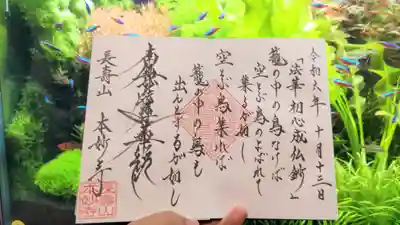 令和六年 十月十三日
「法華初心成仏鈔」
籠の中の鳥なけば
空とぶ鳥のよばれて
集るが如し
空とぶ鳥集れば
籠の中の鳥も
出んとするが如し
南無妙法蓮華経
長寿山 本妙寺